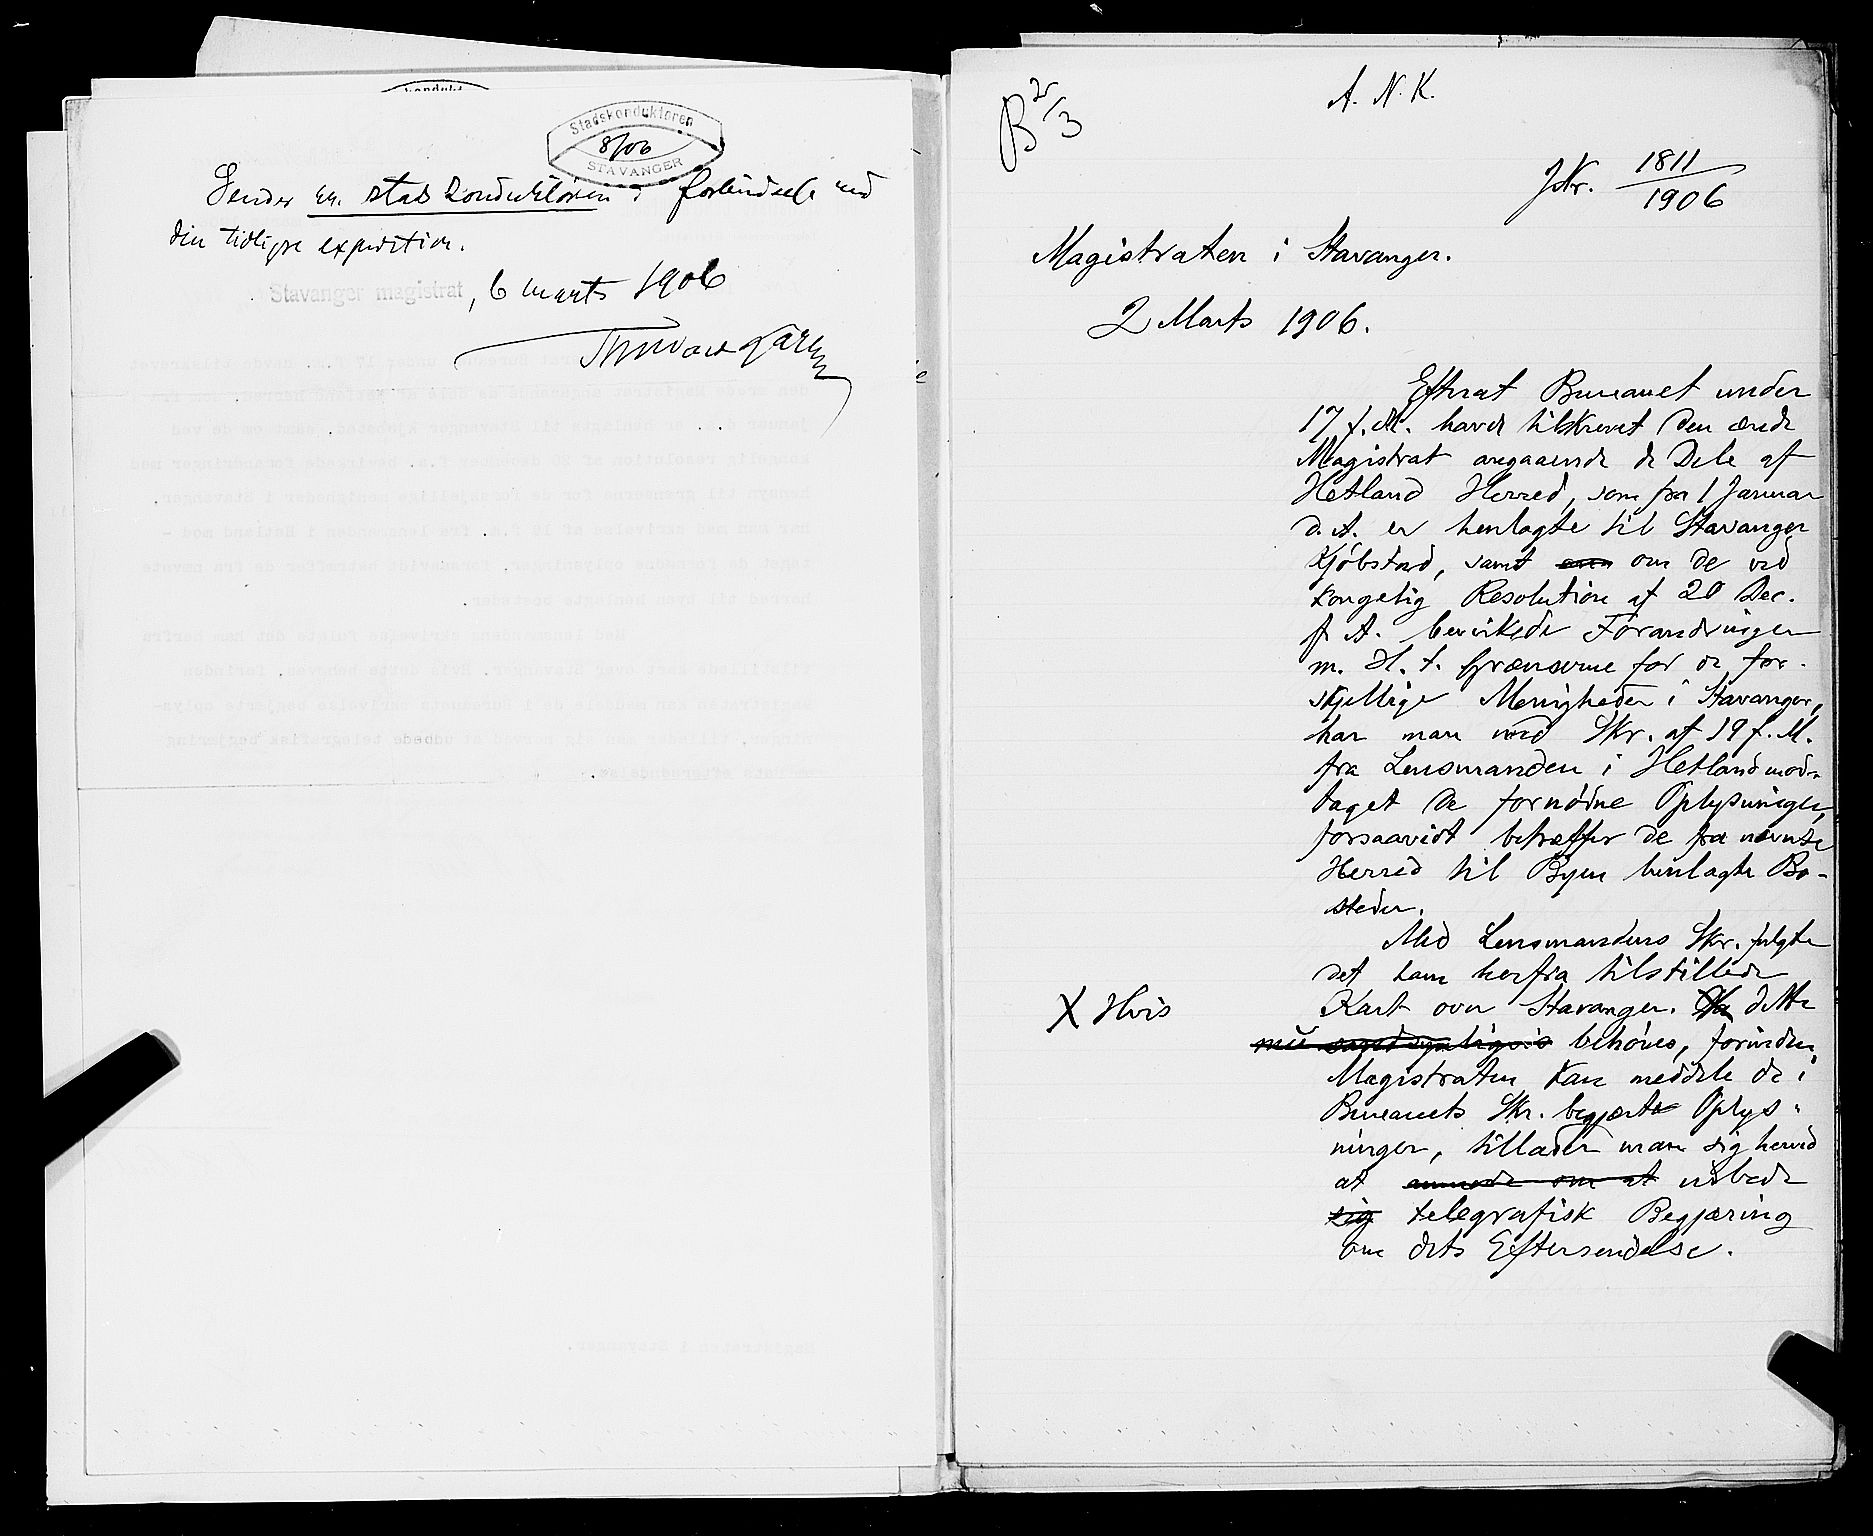 Stadskonduktøren
8/06
STAVANGER
Sendes hr. stadskonduktøren i forbindelse med
din tidligere expedition.
Stavanger magistrat, 6 marts 1906
B 2/3
A. N. K.
Jkr. 1811/1906
Magistraten i Stavanger.
2 Marts 1906.
Efterat Bureauet under
17 f. M. havde tilskrevet den ærede
Magistrat angaaende de Dele af
Hetland Herred, som fra 1 Januar
d. A. er henlagte til Stavanger
Kjøbstad, samt om de ved
kongelig Resolution af 20 Dec.
f. A. bevirkede Forandringer
m. H. t. Grænserne for de for-
skjellige Menigheder i Stavanger,
har man med Skr. af 19 f. M.
fra Lensmanden i Hetland mod-
taget de fornødne Oplysninger,
forsaavidt betræffer de fra nævnte
Herred til Byen henlagte Bo-
steder.
Med Lensmandens Skr. fulgte
det ham herfra tilstillede
X Hvis
Kart over Stavanger. Da dette
nu sandsynligvis behøves, forinden
Magistraten kan meddele de i
Bureauets Skr. begjærte Oplys-
ninger, tillader man sig herved
at anmode om at udbede
sig telegrafisk Begjæring
om dets Eftersendelse.